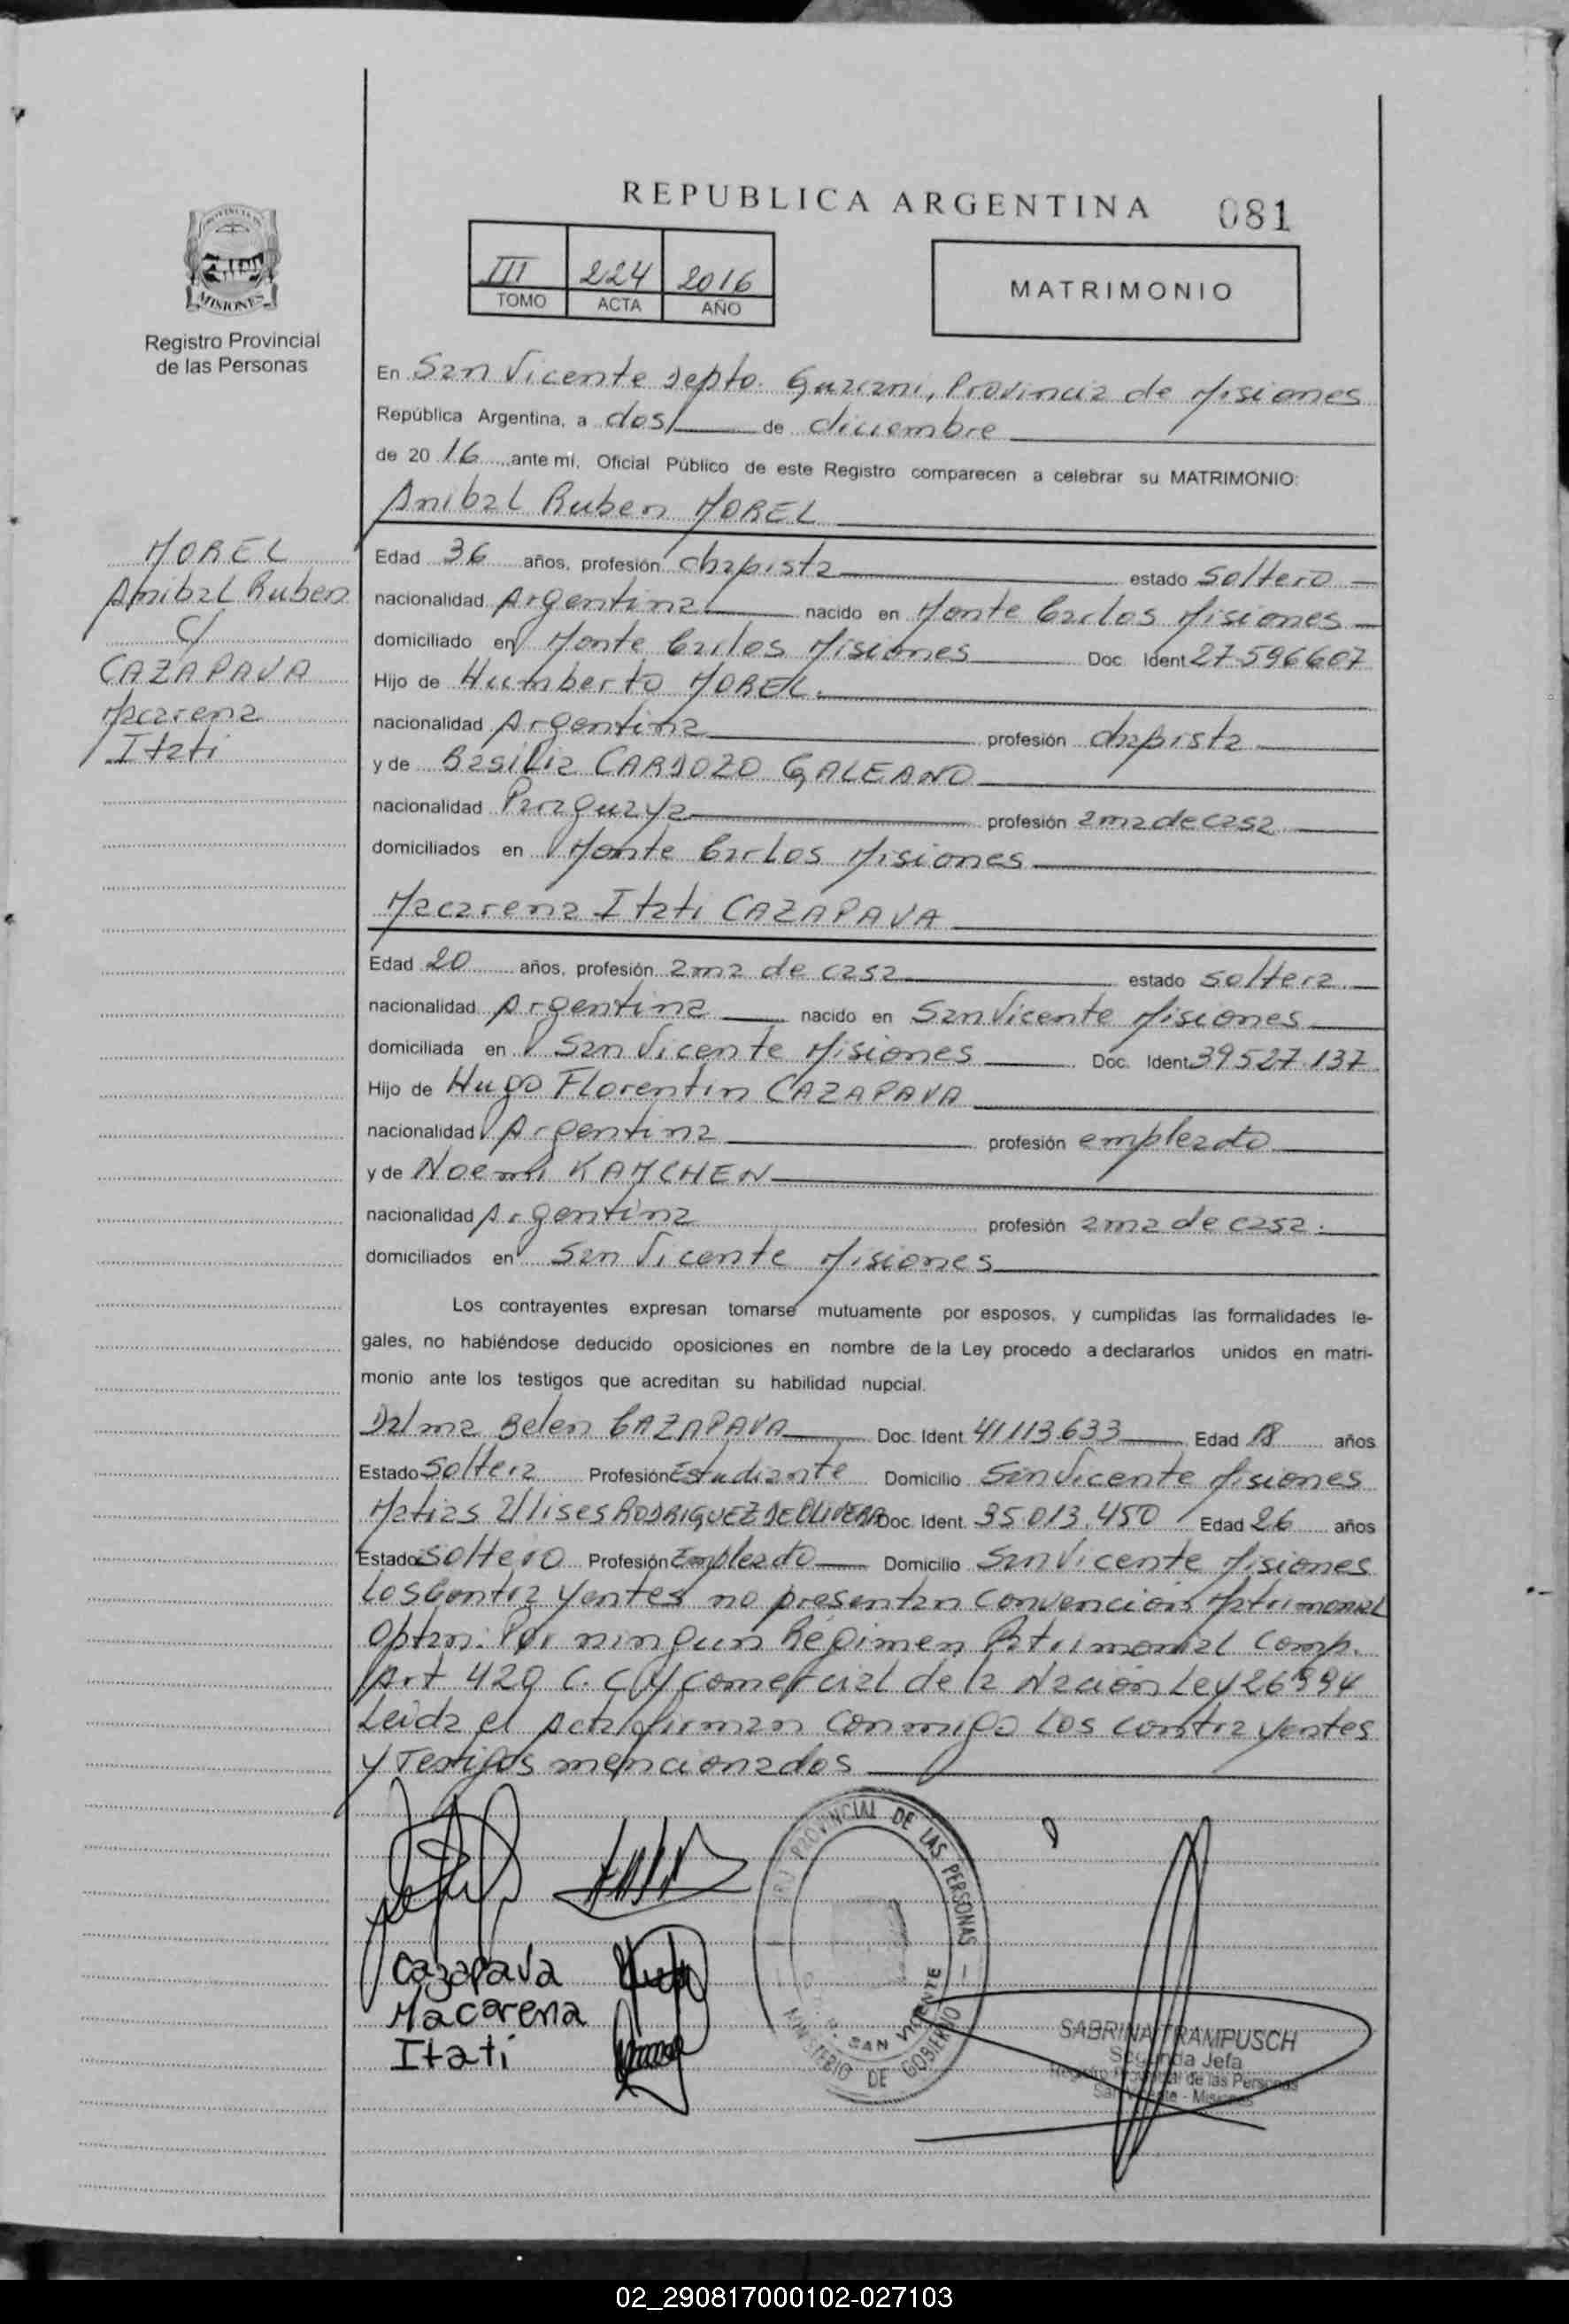 REPUBLICA ARGENTINA 081
III 224 2016
TOMO ACTA AÑO
MATRIMONIO
PROVINCIA DE
MISIONES
Registro Provincial
de las Personas
En San Vicente Depto. Guarani, Provincia de Misiones
República Argentina, a dos de diciembre
de 20 16 ante mí, Oficial Público de este Registro comparecen a celebrar su MATRIMONIO:
Anibal Ruben MOREL
MOREL
Anibal Ruben
C/
CAZAPAVA
Macarena
Itati
Edad 36 años, profesión chapista estado Soltero
nacionalidad Argentina nacido en Monte Carlos Misiones
domiciliado en Monte Carlos Misiones Doc. Ident 27.596607
Hijo de Humberto MOREL.
nacionalidad Argentina profesión chapista
y de Basilia CARDOZO GALEANO
nacionalidad Paraguaya profesión ama de casa
domiciliados en Monte Carlos Misiones
Macarena Itati CAZAPAVA
Edad 20 años, profesión ama de casa estado soltera
nacionalidad Argentina nacido en San Vicente Misiones
domiciliada en San Vicente Misiones Doc. Ident 39527.137
Hijo de Hugo Florentin CAZAPAVA
nacionalidad Argentina profesión empleado
y de Noemi KAMCHEN
nacionalidad Argentina profesión ama de casa.
domiciliados en San Vicente Misiones
Los contrayentes expresan tomarse mutuamente por esposos, y cumplidas las formalidades le-
gales, no habiéndose deducido oposiciones en nombre de la Ley procedo a declararlos unidos en matri-
monio ante los testigos que acreditan su habilidad nupcial.
Dalma Belen CAZAPAVA Doc. Ident. 41113.633 Edad 18 años
Estado Soltera Profesión Estudiante Domicilio San Vicente Misiones
Matias Ulises RODRIGUEZ DE OLIVERA Doc. Ident. 35.013.450 Edad 26 años
Estado Soltero Profesión Empleado Domicilio San Vicente Misiones
Los Contrayentes no presentan Convención Matrimonial
Optan: Por ningun Régimen Patrimonial Comp.
Art 420 C. C y Comercial de la Nación Ley 26994
Leida el Acta firman conmigo Los contrayentes
y Testigos mencionados
Cazapava
Macarena
Itati
PROVINCIAL DE LAS PERSONAS
SAN VICENTE
MINISTERIO DE GOBIERNO
SABRINA TRAMPUSCH
Segunda Jefa
Registro Provincial de las Personas
San Vicente - Misiones
02_290817000102-027103